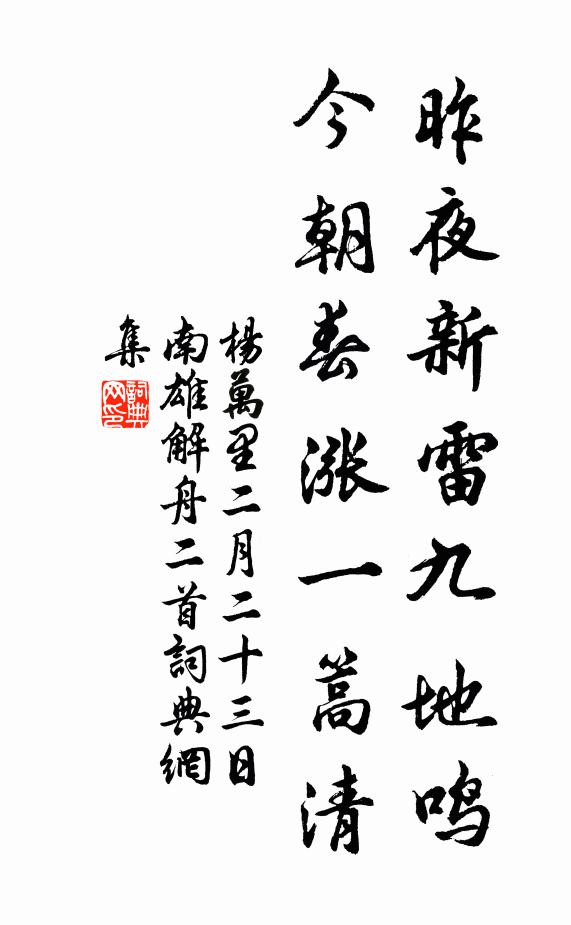 昨夜新雷九地鸣
今朝春涨一篙清
楊萬里二月二十三日
南雄解舟二首詞典網
集
詞典
网印